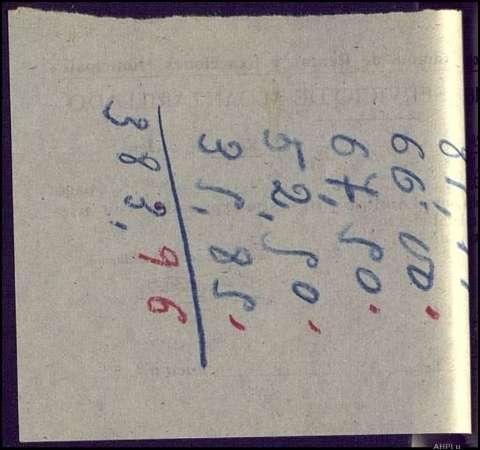 66,00
67,50
52,50
35,85
383,96